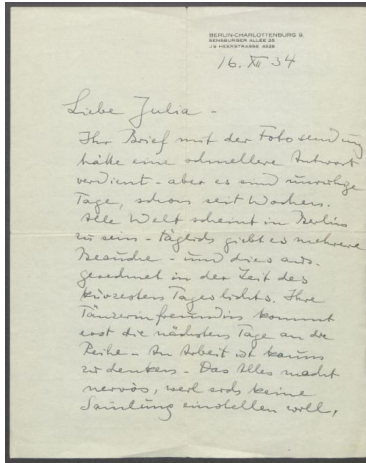 BERLIN-CHARLOTTENBURG 9.
SENSBURGER ALLEE 25
J9 HEERSTRASSE
16. XII 34
Liebe Julia -
Ihr Brief mit der Fotosendung
hätte eine schnellere Antwort
verdient - aber es sind unruhige
Tage, schon seit Wochen.
Alle Welt scheint in Berlin
zu sein - täglich giebt es mehrere
Besuche - und dies aus-
gerechnet in der Zeit des
kürzesten Tageslichts. Ihre
Tänzerinfreundin kommt
erst die nächsten Tage an die
Reihe - An Arbeit ist kaum
zu denken - Das Alles macht
nervös, weil sich keine
Samlung einstellen will,